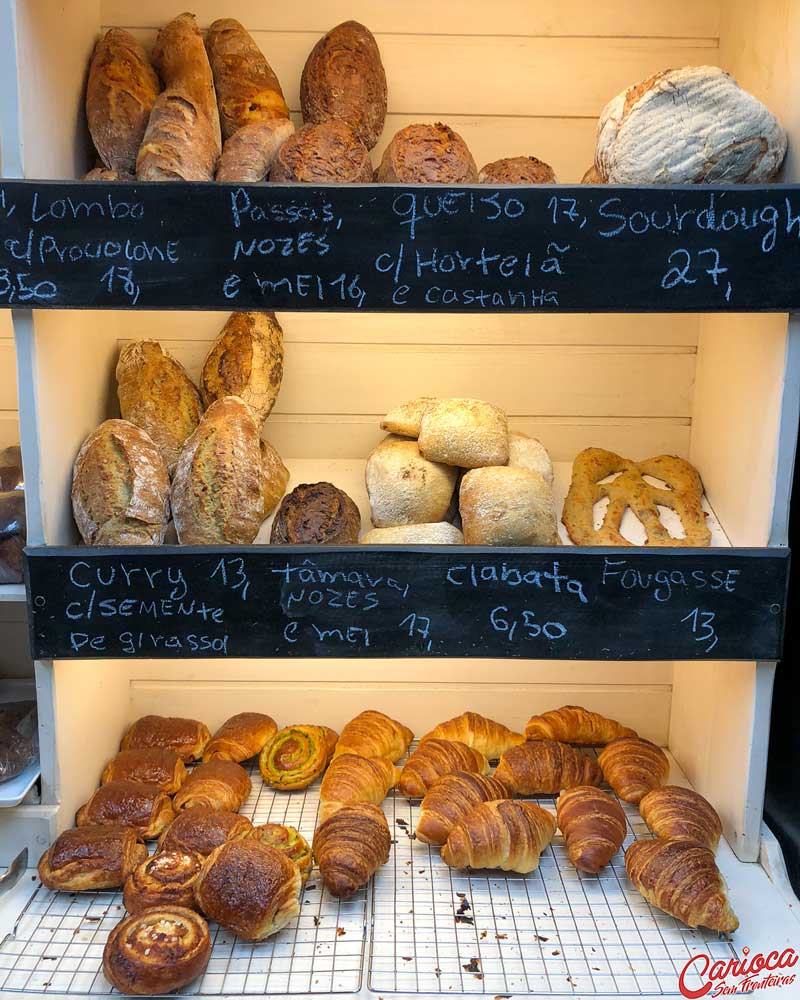 Lombo Passas, QUEIJO 17, Sourdough
c/PROVOLONE NOZES c/HortElã 27,
3,50 18, e mEl 16, e castanha
Curry 13, tâmara, Ciabata Fougasse
c/SEMENte NOZES 6,50 13,
De girassol e mEl 17,
Carioca
Sem Fronteiras